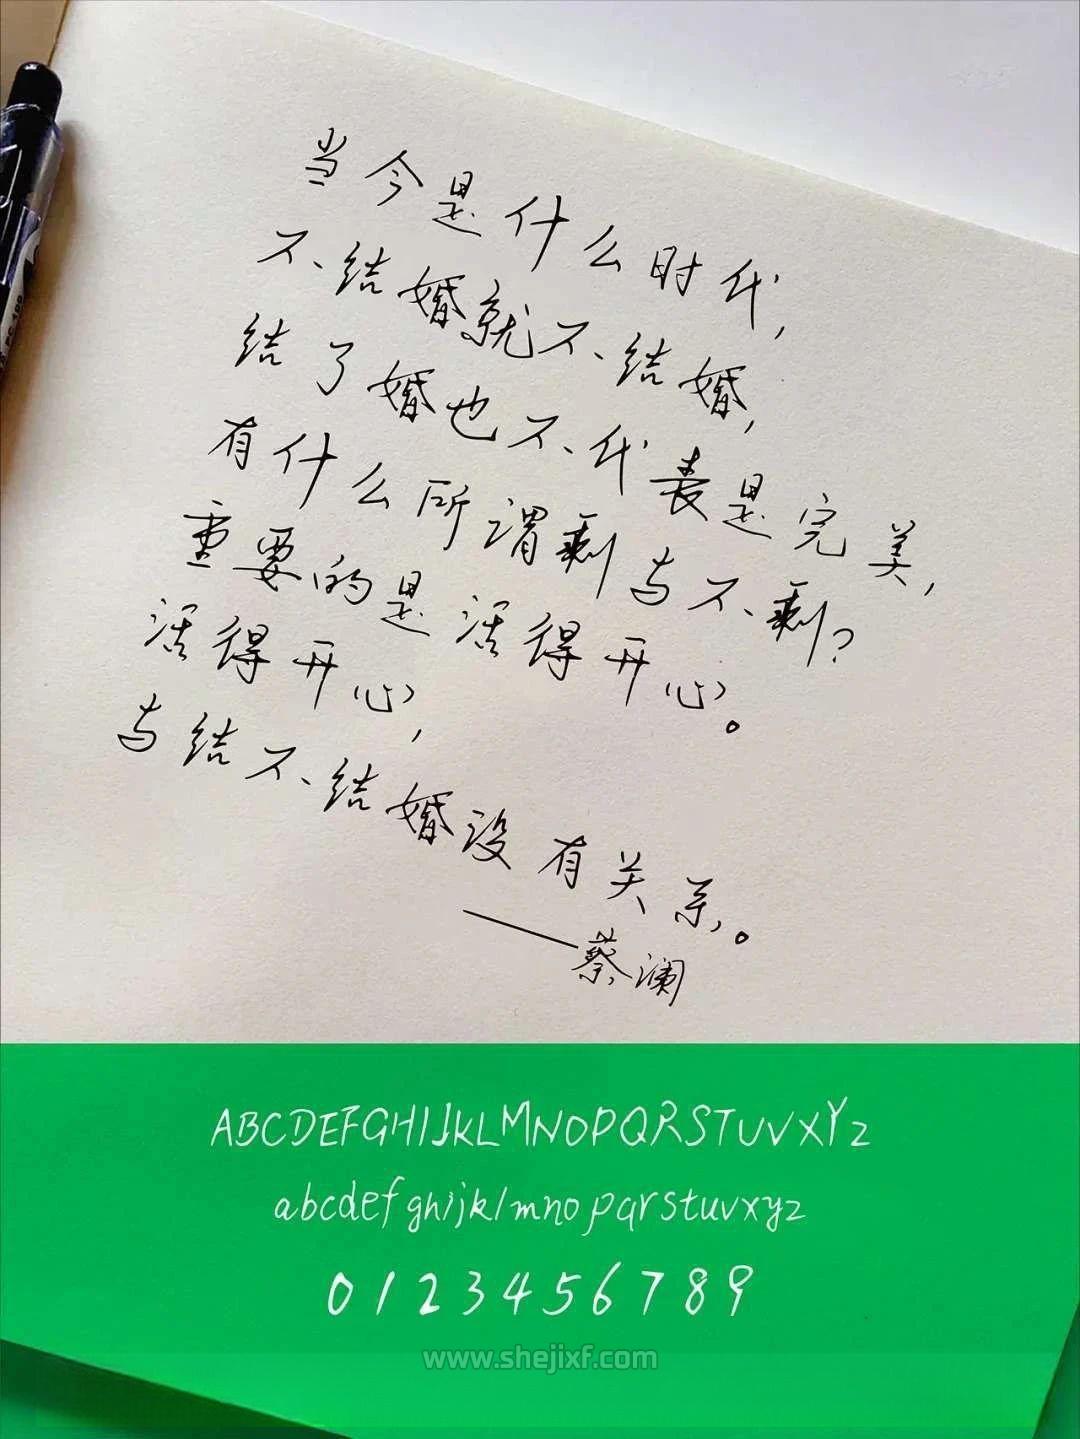 当今是什么时代,
不结婚就不结婚,
结了婚也不代表是完美,
有什么所谓剩与不剩?
重要的是活得开心。
活得开心,
与结不结婚没有关系。
——蔡澜
ABCDEFGHIJKLMNOPQRSTUVXYZ
abcdefghijklmnopqrstuvxyz
0123456789
www.shejixf.com